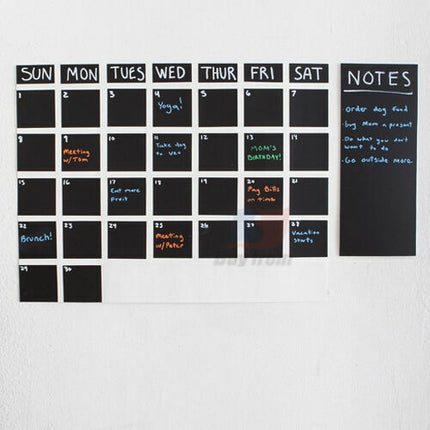 SUN MON TUES WED THUR FRI SAT
1 2 3 4 5 6 7
Yoga!
8 9 10 11 12 13 14
Meeting
w/Tom
Take dog
to Vet
MOM'S
BIRTHDAY!
15 16 17 18 19 20 21
Eat more
Fruit
Pay Bills
on time
22 23 24 25 26 27 28
Brunch!
Meeting
w/Peter
Vacation
Starts
29 30
NOTES
·order dog food
·buy Mom a present
·Do what you don't
want to do
·Go outside more